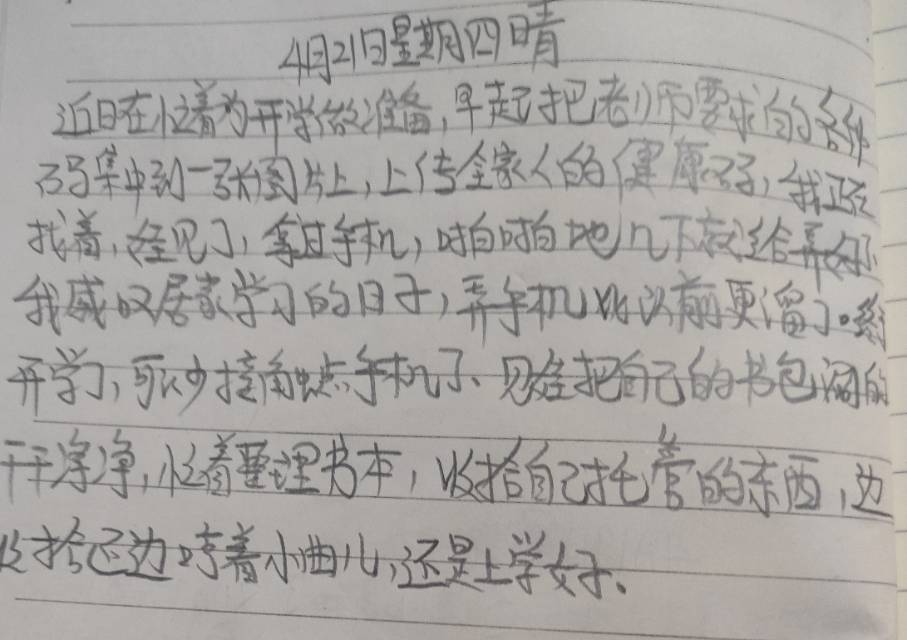 4月21日星期四晴
近日在忙着为开学做准备,早起把老师要求的各种
码集中到一张图片上,上传全家人的健康码,我正在
找着,娃见了,拿过手机,啪啪地几下就给弄好了
我感叹居家学习的日子,弄手机比以前更溜了。终于
开学了,可以少接触点手机了、见娃把自己的书包涮的
干干净净,忙着整理书本,收拾自己托管的东西,边
收拾还边哼着小曲儿,还是上学好。